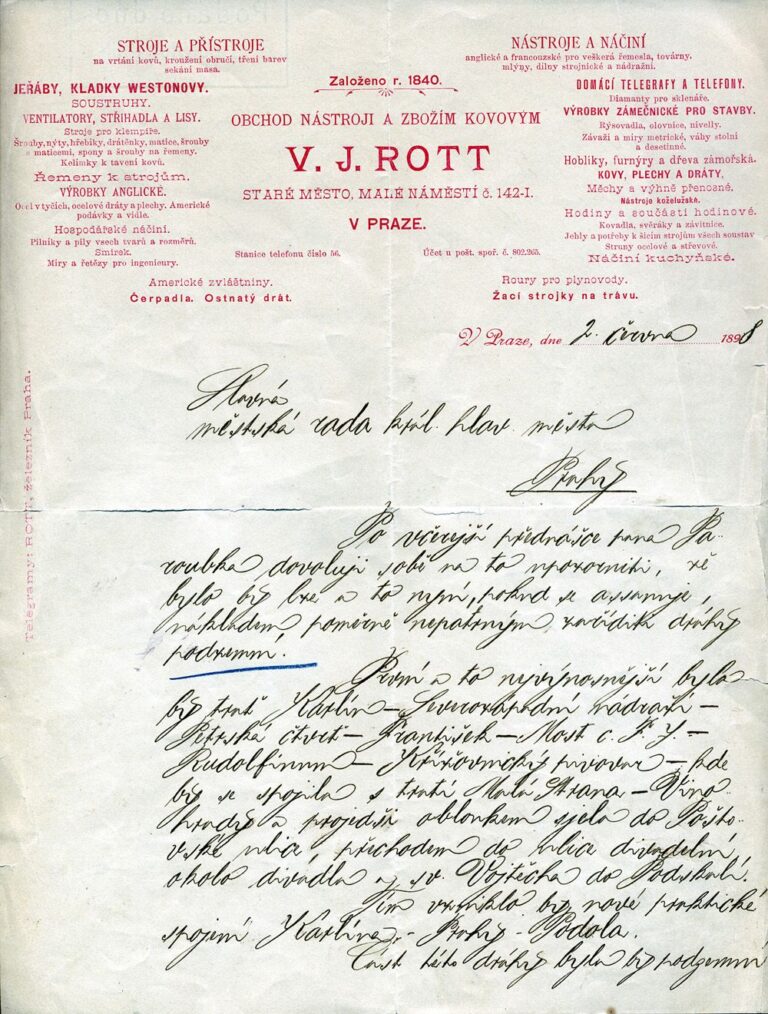 STROJE A PŘÍSTROJE
na vrtání kovů, kroužení obručí, tření barev
sekání masa.
JEŘÁBY, KLADKY WESTONOVY.
SOUSTRUHY.
VENTILATORY, STŘIHADLA A LISY.
Stroje pro klempíře.
Šrouby, nýty, hřebíky, drátěnky, matice, šrouby
s maticemi, spony a šrouby na řemeny.
Kelímky k tavení kovů.
Řemeny k strojům.
VÝROBKY ANGLICKÉ.
Ocel v tyčích, ocelové dráty a plechy. Americké
podávky a vidle.
Hospodářské náčiní.
Pilníky a pily všech tvarů a rozměrů.
Smirek.
Míry a řetězy pro ingenieury.
Americké zvláštniny.
Čerpadla. Ostnatý drát.
Založeno r. 1840.
OBCHOD NÁSTROJI A ZBOŽÍM KOVOVÝM
V. J. ROTT
STARÉ MĚSTO, MALÉ NÁMĚSTÍ č. 142-I.
V PRAZE.
Stanice telefonu číslo 56.
Účet u pošt. spoř. č. 802.265.
NÁSTROJE A NÁČINÍ
anglické a francouzské pro veškerá řemesla, továrny.
mlýny, dílny strojnické a nádražní.
DOMÁCÍ TELEGRAFY A TELEFONY.
Diamanty pro sklenáře.
VÝROBKY ZÁMEČNICKÉ PRO STAVBY.
Rýsovadla, olovnice, nivelly.
Závaží a míry metrické, váhy stolní
a desetinné.
Hoblíky, furnýry a dřeva zámořská.
KOVY, PLECHY A DRÁTY,
Měchy a výhně přenosné.
Nástroje koželužské.
Hodiny a součásti hodinové.
Kovadla, svěráky a závitnice.
Jehly a potřeby k šicím strojům všech soustav
Struny ocelové a střevové.
Náčiní kuchyňské.
Roury pro plynovody.
Žací strojky na trávu.
V Praze, dne 2. června 1898
Telegramy: ROTT, železník Praha.
Slavná
městská rada král. hlav. města
Prahy
Po včerejší přednášce pana Pa-
roubka dovoluji sobě na to upozorniti, že
bylo by lze a to nyní, pokud se assanuje,
nákladem poměrně nepatrným zařídit dráhy
podzemní.
První a to nejvýnosnější byla
by trať Karlín – Severozápadní nádraží –
Petrská čtvrť – František – Most c. F. J. –
Rudolfinum – Křižovnický pivovar – kde
by se spojila s tratí Malá Strana – Vino-
hrady a projedši obloukem sjela do Pošto-
vské ulice přechodem do ulice divadelní
okolo divadla a sv. Vojtěcha do Podskalí.
Tím vzniklo by nové praktické
spojení Karlína – Prahy – Podola.
Část této dráhy byla by podzemní